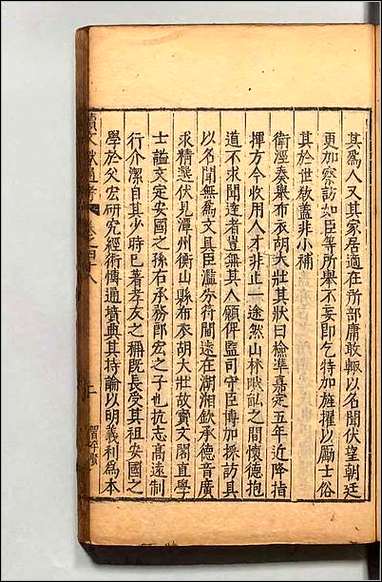 其爲人又其家居適在所部庸敢輒以名聞伏望朝廷
更加察訪如臣等所舉不妄即乞特加旌擢以厲士俗
其於世教蓋非小補
衛涇奏舉布衣胡大壯其狀曰檢準嘉定五年近降指
揮方今收用人才非止一途然山林畎畝之間懷德抱
道不求聞達者豈無其人顧俾監司守臣博加採訪具
以名聞無爲文具臣濫分符閫遠在湖湘欽承德音廣
求精選伏見潭州衡山縣布衣胡大壯故寶文閣直學
士謚文定安國之孫右承務郎宏之子也抗志高遠制
行介潔自其少時已著孝友之稱既長受其祖安國之
學於父宏研究經術博通墳典其持論以明義利爲本
續文獻通考 卷之四十八